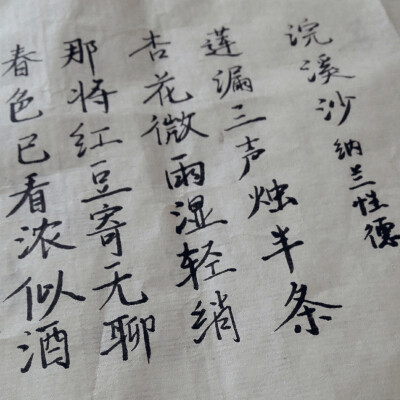 浣溪沙
纳兰性德
莲漏三声烛半条
杏花微雨湿轻绡
那将红豆寄无聊
春色已看浓似酒